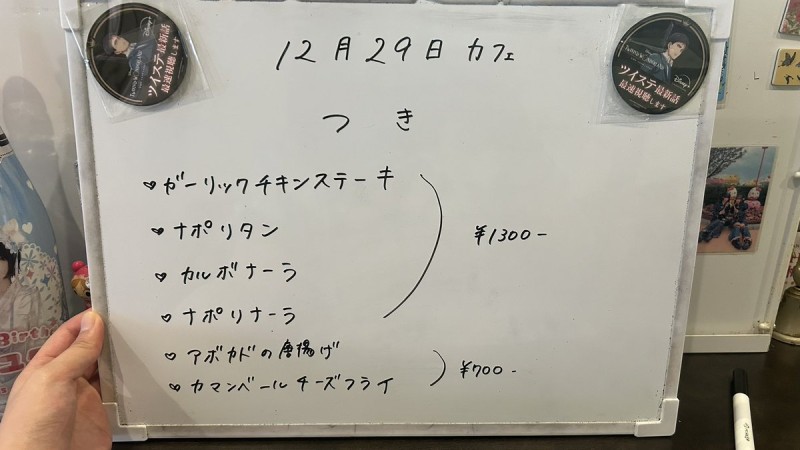 12月29日 カフェ
つき
♡ ガーリックチキンステーキ
♡ ナポリタン
♡ カルボナーラ
♡ ナポリナーラ
¥1300-
♡ アボカドの唐揚げ
♡ カマンベールチーズフライ
¥700-
Disney+
ツイステ最新話
最速視聴します
Disney+
ツイステ最新話
最速視聴します
Birth